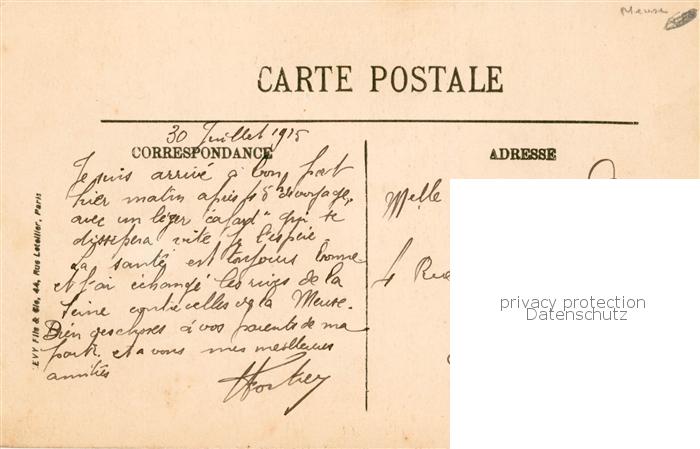 Meuse
CARTE POSTALE
30 Juillet 1915
CORRESPONDANCE
Je suis arrivé à bon port
hier matin après de voyage,
avec un léger "cafard" qui se
dissipera vite je l'espère
La santé est toujours bonne
et j'ai échangé les rives de la
Seine contre celles de la Meuse.
Bien des choses à vos parents de ma
part et à vous mes meilleures
amitiés
LEVY Fils & Cie, 44, Rue Letellier, Paris
ADRESSE
Melle
4 Rue
privacy protection
Datenschutz